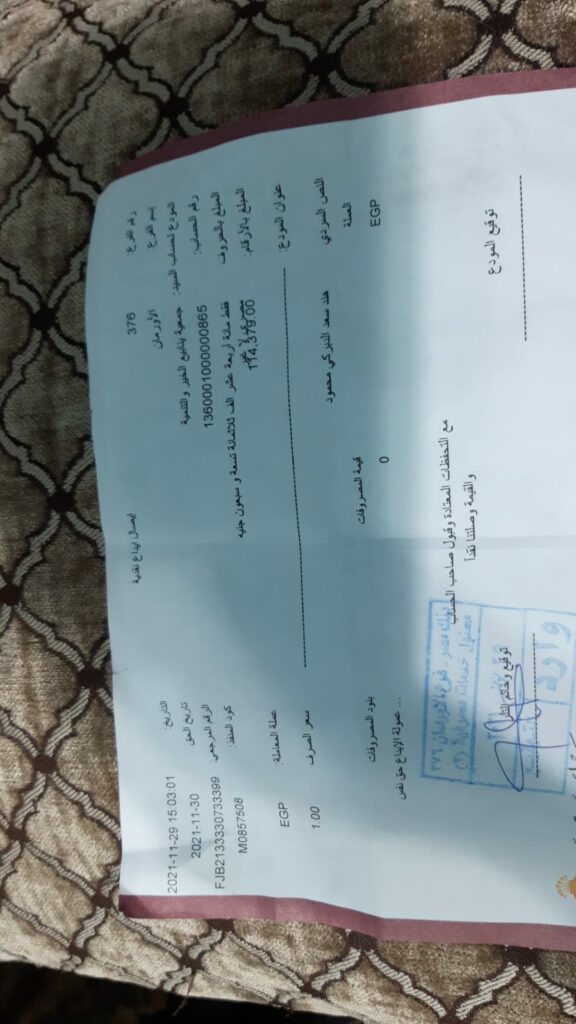 إيصال ايداع نقدية
رقم الفرع: 376
التاريخ: 2021-11-29 15:03:01
إسم الفرع: الأورمان
تاريخ الحق 2021-11-30
المودع لحساب السيد: جمعية ينابيع الخير والتنمية
الرقم المرجعي: FJB2133330733399
رقم الحساب: 1360001000000865
كود المنفذ: M0857508
المبلغ بالحروف فقط مائة اربعة عشر الف ثلاثمائة تسعة و سبعون جنيه
مصري لا غير
المبلغ بالأرقام: 114,379.00
عنوان المودع:
عملة المعاملة: EGP
النص السردي هند سعد محمود
سعر الصرف 1.00
العملة EGP
قيمة المصروفات 0
بنود المصروفات
... عمولة الإيداع حق نفس
مع التحفظات المعتادة وقبول صاحب الحساب
والقيمة وصلتنا نقدا
توقيع المودع
توقيع وخاتم
بنك مصر
٣٧٦
وارد